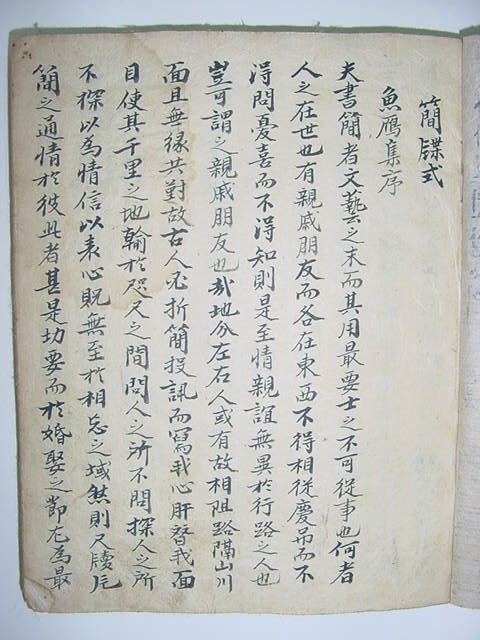 簡牒式
魚鴈集序
夫書簡者文藝之末而其用最要士之不可從事也何者
人之在世也有親戚朋友而各在東西不得相從慶吊而不
得問憂喜而不得知則是至情親誼無異於行路之人也
豈可謂之親戚朋友也哉地分左右人或有故相阻路隔山川
面且無緣共對故古人必折簡投訊而寫我心肝替我面
目使其千里之地輸於咫尺之間問人之所不問探人之所
不探以為情信以表心貺無至於相忘之域然則尺牘
簡之通情於彼此者甚是切要而於婚娶之節尤為最